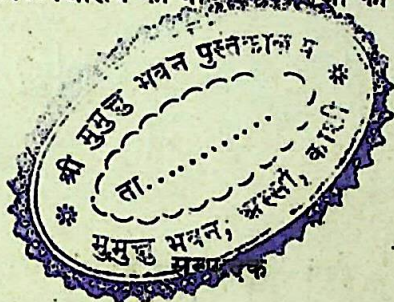 श्री मुमुक्षु भवन पुस्तकालय
ता..............
मुमुक्षु भवन, अस्सी, काशी